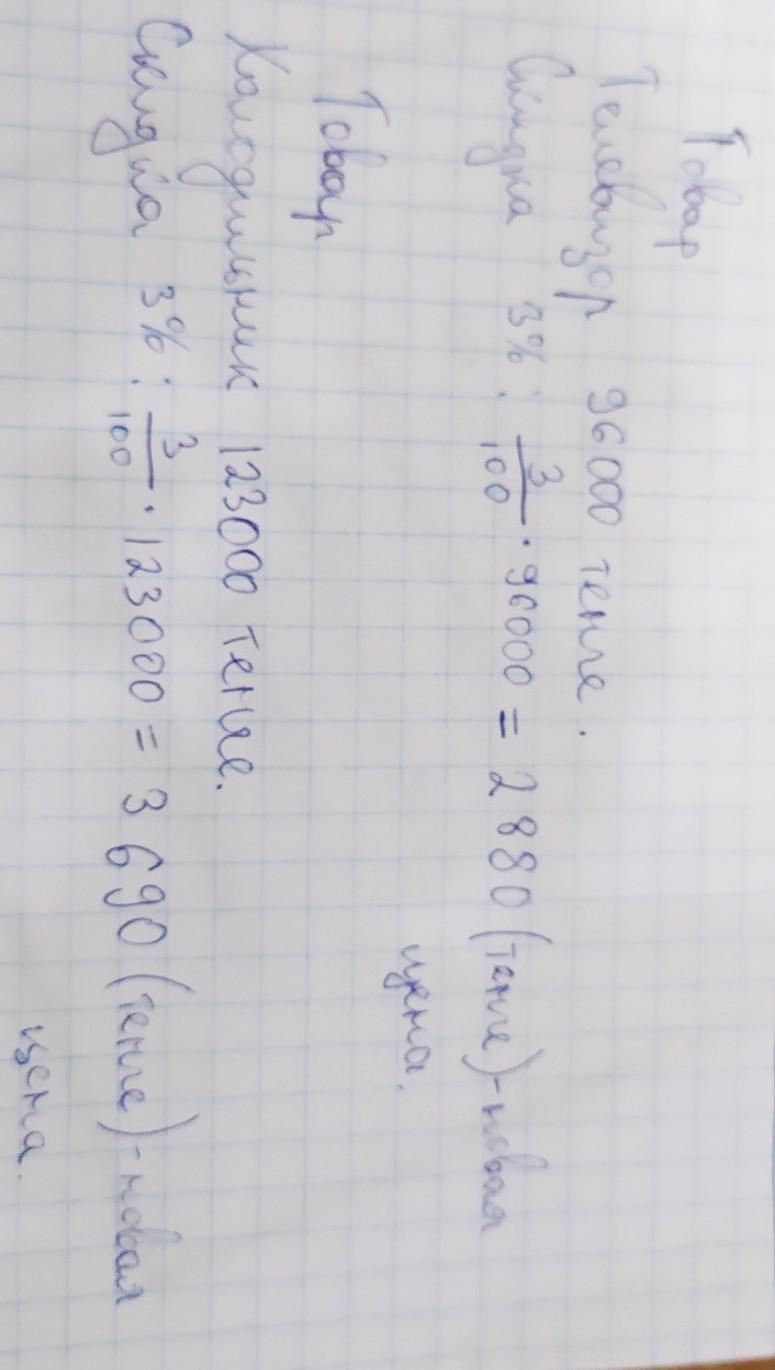 Товар
Телевизор 96000 тенге.
Скидка 3% : 3/100 · 96000 = 2 880 (тенге) - новая
цена.
Товар
Холодильник 123000 тенге.
Скидка 3% : 3/100 · 123000 = 3 690 (тенге) - новая
цена.